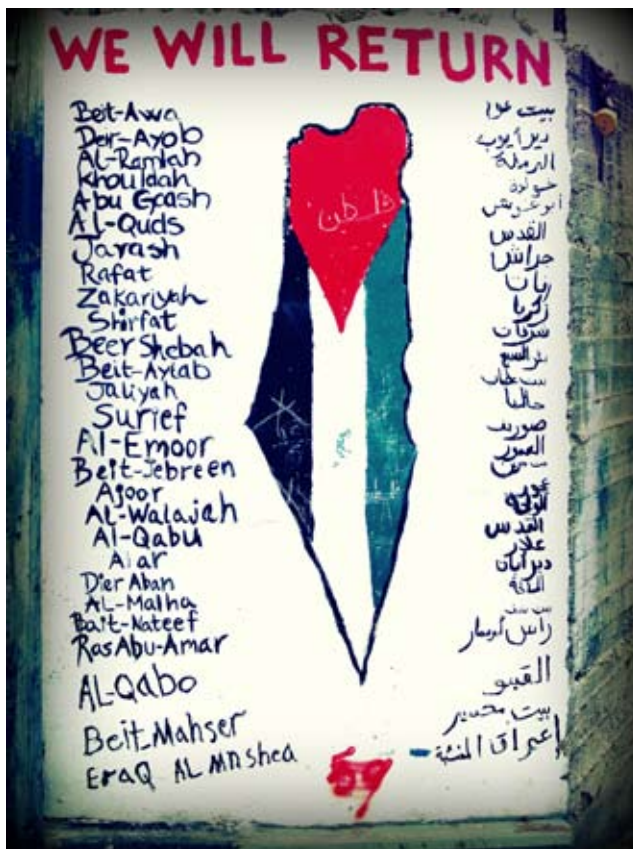 WE WILL RETURN
Beit-Awa
Der-Ayob
Al-Ramlah
Khouldah
Abu Goash
Al-Quds
Jarash
Rafat
Zakariyah
Shirfat
Beer Shebah
Beit-Aytab
Jaliyah
Surief
Al-Emoor
Beit-Jebreen
Ajoor
AL-Walajah
Al-Qabu
Alar
D'er Aban
AL-Malha
Bait-Nateef
Ras Abu-Amar
AL-Qabo
Beit_Mahser
EraQ AL MnShea
فلسطين
بيت عوا
دير أيوب
الرملة
خولدة
القدس
جراش
رفات
زكريا
شرفات
بئر السبع
صوريف
العمور
عجور
الولجة
القدس
علار
دير ابان
المالحة
راس ابو عمار
القبو
بيت محسير
عراق المنشية